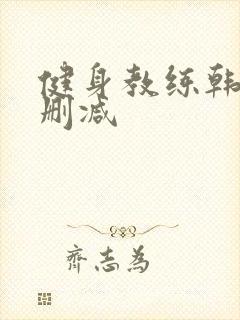 健身教练韩
删减
齐志为